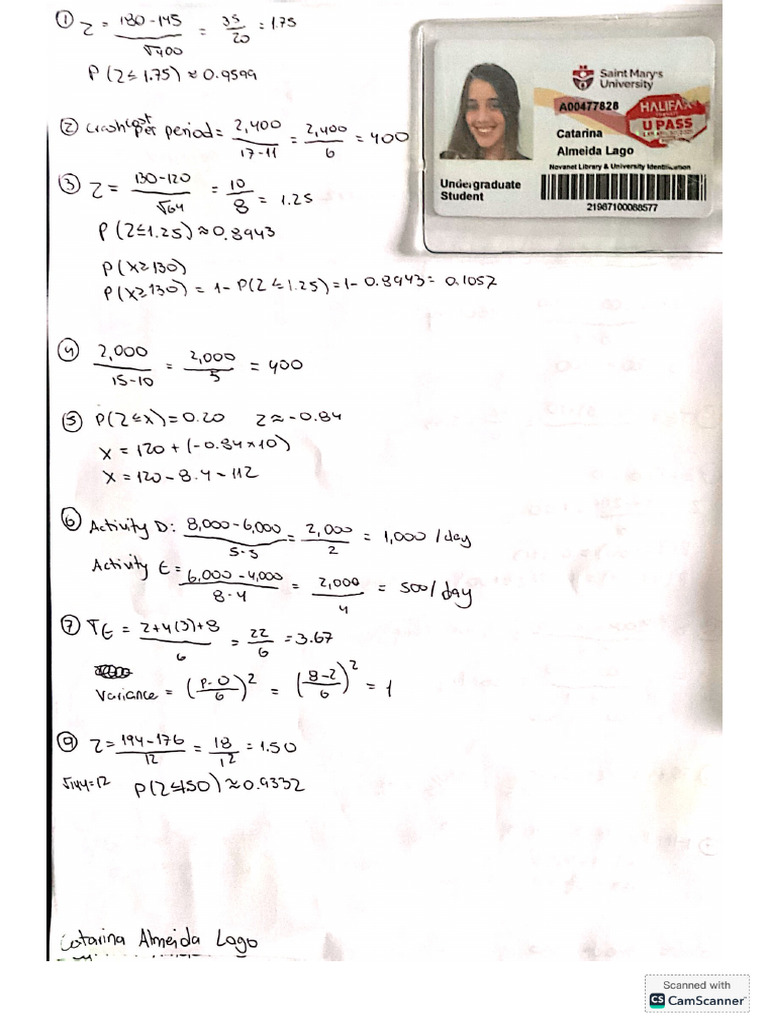 ① Z = 180-145 / √400 = 35 / 20 = 1.75
P(Z ≤ 1.75) ≈ 0.9599
② Crash cost per period = 2,400 / 17-11 = 2,400 / 6 = 400
③ Z = 130-120 / √64 = 10 / 8 = 1.25
P(Z ≤ 1.25) ≈ 0.8943
P(X ≥ 130)
P(X ≥ 130) = 1 - P(Z ≤ 1.25) = 1 - 0.8943 = 0.1057
④ 2,000 / 15-10 = 2,000 / 5 = 400
⑤ P(Z ≤ x) = 0.20 Z ≈ -0.84
X = 120 + (-0.84 × 10)
X = 120 - 8.4 - 112
⑥ Activity D: 8,000-6,000 / 5-3 = 2,000 / 2 = 1,000 /day
Activity E = 6,000-4,000 / 8-4 = 2,000 / 4 = 500/day
⑦ TE = 2+4(3)+8 / 6 = 22 / 6 = 3.67
Variance = (P-O / 6)² = (8-2 / 6)² = 1
⑨ Z = 194-176 / 12 = 18 / 12 = 1.50
√144=12 P(Z ≤ 150) ≈ 0.9332
Catarina Almeida Lago
Saint Mary's
University
A00477828
HALIFAX
U PASS
Catarina
Almeida Lago
Novanet Library & University Identification
Undergraduate
Student
21987100088577
Scanned with
CS CamScanner